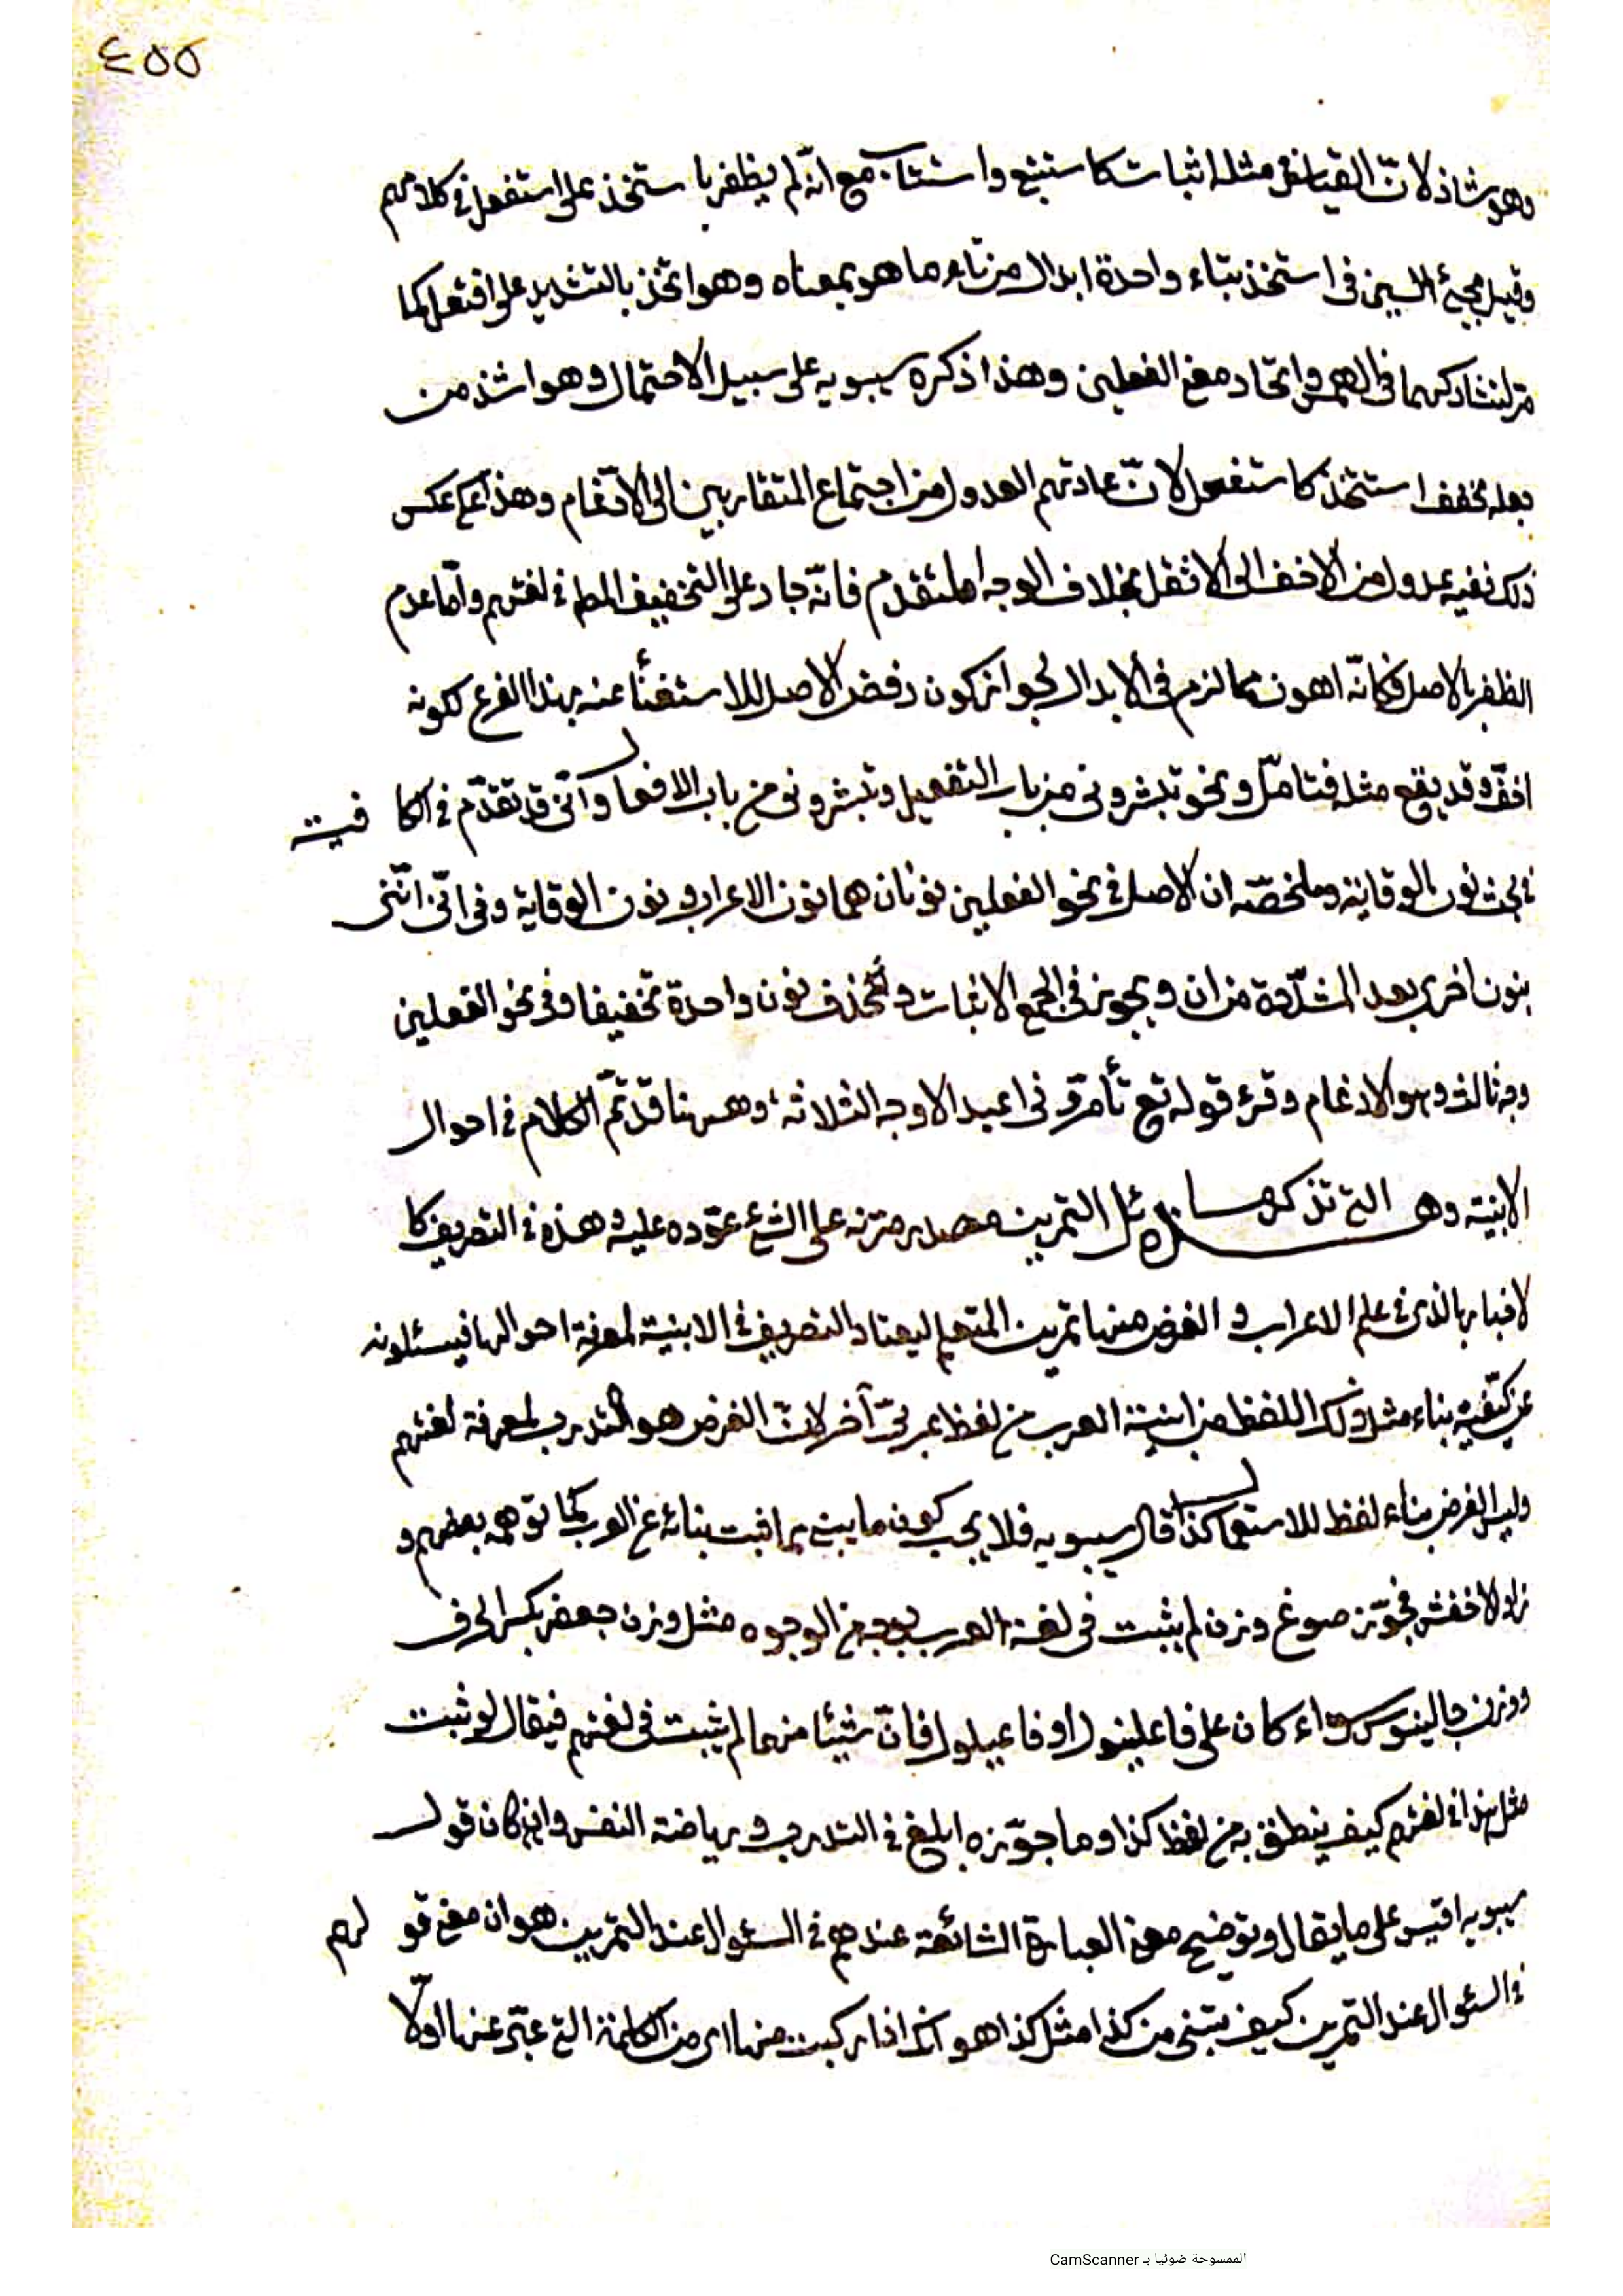 ٤٥٥
وهو شاذ لانّ القياس في مثله اثبات كاستتبع واستتاب مع انّه لم يظفر باستتخذ على استفعل في كلامهم
وقيل مجيئ السين في استخذ بتاء واحدة ابدال من تاء ما هو بمعناه وهو اتخذ بالتشديد على افتعل كما
مرّ لتشاركهما في الهمس واتحاد معنى الفعلين وهذا ذكره سيبويه على سبيل الاحتمال وهو اشذ من
جعله مخفف استتخذ كاستفعل لانّ عادتهم العدول من اجتماع المتقاربين الى الادّغام وهذا عكس
ذلك ففيه عدول من الاخف الى الاثقل بخلاف الوجه المتقدم فانّه جار على التخفيف المط في لغتهم وامّا عدم
الظفر بالاصل فكانّه اهون مما لزم في الابدال لجواز كون رفض الاصل للاستغنأ عنه بهذا الفرع لكونه
اخفّ وقد يقع مثله فتامّل ونحو تبشروني من باب التفعيل وتبشروني من باب الافعال وانّي قد تقدّم في الكافية
في بحث نون الوقاية وملخصّه ان الاصل في نحو الفعلين نونان هما نون الاعراب ونون الوقاية وفي انّي انّني
بنون اخرى بعد المشدّدة من ان ويجوز في الجمع الاثبات وتحذف نون واحدة تخفيفا وفي نحو الفعلين
وجه ثالث وهو الادغام وقرء قوله تع تأمرونّي اعبد الاوجه الثلاثة وههنا قد تمّ الكلام في احوال
الابنية وهي التي تذكرها مسائل التمرين مصدر مرّنه على الشئ عوّده عليه وهذه في التصريف كا
لاخبار بالذي في علم الاعراب والغرض منها تمرين المتعلم ليعتاد التصريف في الابنية لمعرفة احوالها فيسئلونه
عن كيّفية بناء مثل ذلك اللفظ من ابنية العرب من لفظ عربيّ آخر لانّ الغرض هو التدرب لمعرفة لغتهم
وليس الغرض بناء لفظ للاستعمال كذا قال سيبويه فلا يجب كون ما يبنى مما ثبت بنائه عن العرب كما توهمه بعضهم و
زاد الاخفش فجوّز صوغ وزن لم يثبت في لغة العرب بوجه من الوجوه مثل وزن جعفر بكسر الحرف
ووزن جالينوس سواء كان على فاعلينول او فاعيلول فانّ شيئا منها لم يثبت في لغتهم فيقال لو ثبت
مثل هذا في لغتهم كيف ينطق به من لفظ كذا وما جوّزه ابلغ في التدرب ورياضة النفس وان كان قول
سيبويه اقيس على ما يقال وتوضيح معنى العبارة الشائعة عندهم في السئوال عند التمرين هو ان معنى قولهم
في السئوال عند التمرين كيف تبنى من كذا مثل كذا هو انّك اذا ركبت منها اى من الكلمة التي عبّر عنها اولّا
الممسوحة ضوئيا بـ CamScanner